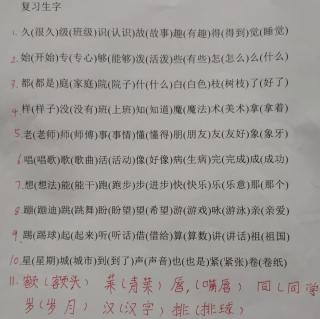 复习生字
1. 久(很久)级(班级)识(认识)故(故事)趣(有趣)得(得到)觉(睡觉)
2. 始(开始)专(专心)够(能够)泼(活泼)些(有些)怎(怎么)么(什么)
3. 都(都是)庭(家庭)院(院子)什(什么)白(白色)枝(树枝)了(好了)
4. 样(样子)没(没有)班(上班)知(知道)魔(魔法)术(美术)拿(拿着)
5. 老(老师)师(师傅)事(事情)懂(懂得)朋(朋友)友(友好)象(象牙)
6. 唱(唱歌)歌(歌曲)活(活动)像(好像)病(生病)完(完成)成(成功)
7. 想(想法)能(能干)跑(跑步)步(进步)快(快乐)乐(乐意)那(那个)
8. 蹦(蹦迪)跳(跳舞)盼(盼望)望(希望)游(游戏)泳(游泳)亲(亲爱)
9. 踢(踢球)起(起来)听(听话)借(借给)算(算数)讲(讲话)祖(祖国)
10. 星(星期)城(城市)到(到了)声(声音)也(也是)紧(紧张)卷(卷纸)
11. 额(额头) 菜(青菜) 唇(嘴唇) 同(同学
岁(岁月) 汉(汉字) 排(排球)